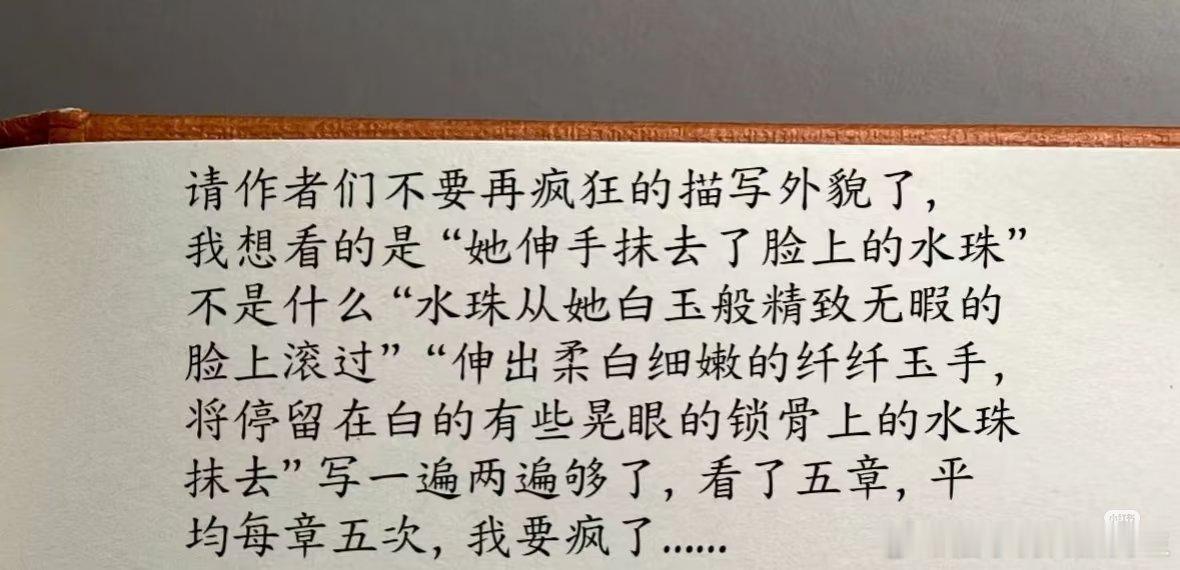 请作者们不要再疯狂的描写外貌了,
我想看的是“她伸手抹去了脸上的水珠”
不是什么“水珠从她白玉般精致无暇的
脸上滚过”“伸出柔白细嫩的纤纤玉手,
将停留在白的有些晃眼的锁骨上的水珠
抹去”写一遍两遍够了, 看了五章, 平
均每章五次, 我要疯了......
小红书